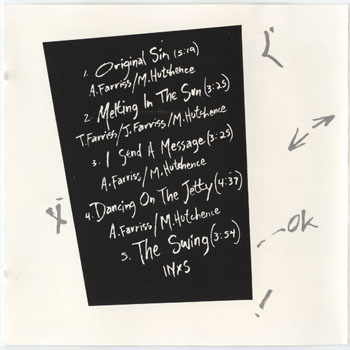 1. Original Sin (5:19)
A.Farriss/M.Hutchence
2. Melting In The Sun (3:25)
T.Farriss/J.Farriss/M.Hutchence
3. I Send A Message (3:25)
A.Farriss/M.Hutchence
4. Dancing On The Jetty (4:37)
A.Farriss/M.Hutchence
5. The Swing (3:54)
INXS
OK